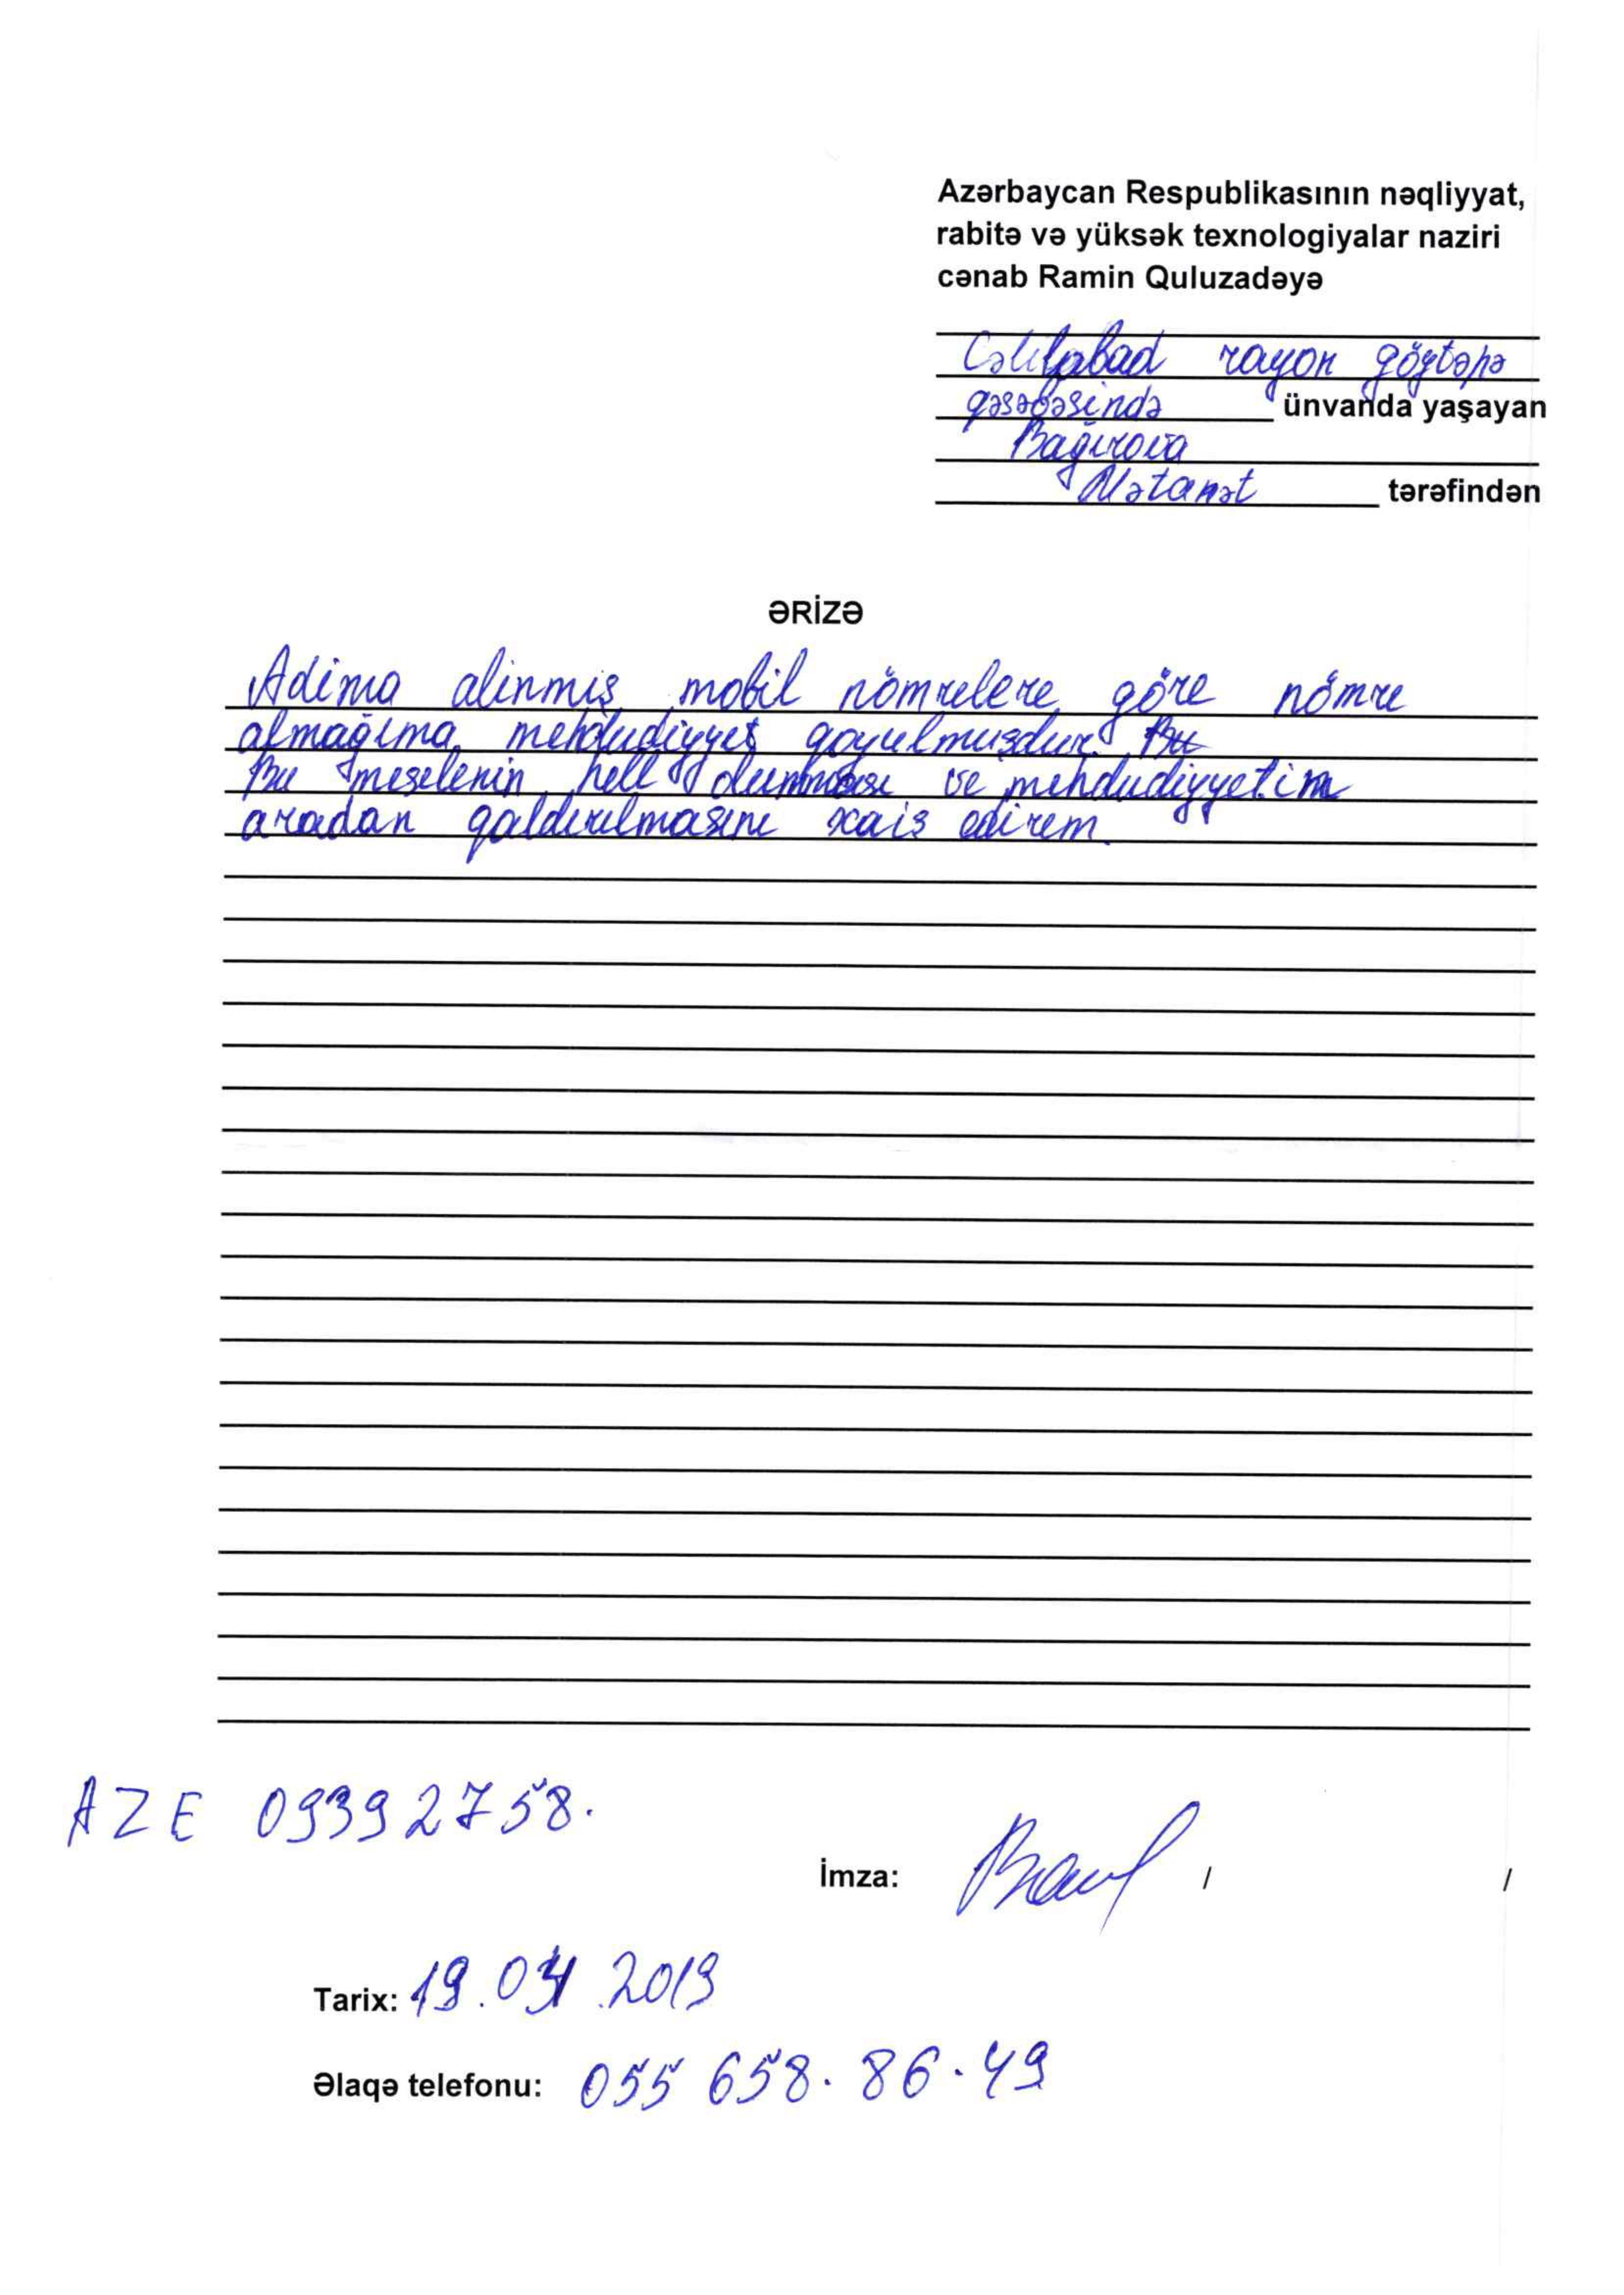 Azərbaycan Respublikasının nəqliyyat,
rabitə və yüksək texnologiyalar naziri
cənab Ramin Quluzadəyə
Cəlilabad rayon göytəpə
qəsəbəsində ünvanda yaşayan
Bağırova
Mətanət tərəfindən
ƏRİZƏ
Adima alinmiş mobil nömrelere göre nömre
almağıma mehdudiyyet qoyulmuşdur. Bu
Bu meselenin hell olunması ve mehdudiyyetim
aradan qaldırılmasını xais edirem.
AZE 09392758.
İmza: / /
Tarix: 19.04.2019
Əlaqə telefonu: 055 658. 86. 49